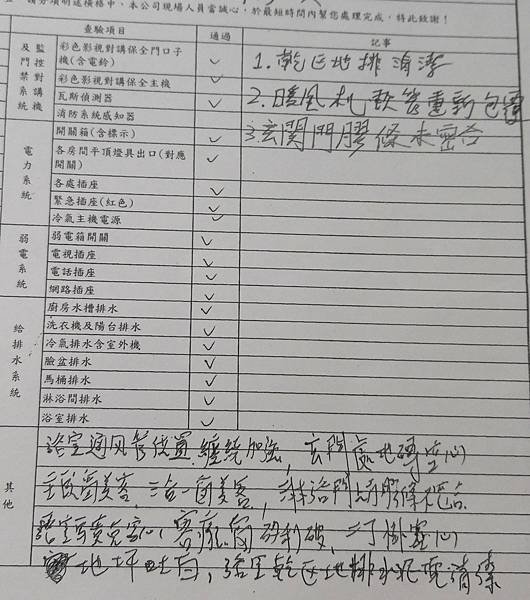 請分項明述横格中，本公司現場人員當誠心，於最短時間內幫您處理完成，特此致謝！
查驗項目 通過 記事
監控對講機及門禁系統
彩色影視對講保全門口子機(含電鈴) ✓ 1.乾區地排消潔
彩色影視對講保全主機 ✓
瓦斯偵測器 ✓ 2.暖風机軟管重新包覆
消防系統感知器
電力系統
開關箱(含標示) ✓ 3.玄関門膠條未密合
各房間平頂燈具出口(對應開關) ✓
各處插座 ✓
緊急插座(紅色) ✓
冷氣主機電源 ✓
弱電系統
弱電箱開關 ✓
電視插座 ✓
電話插座 ✓
網路插座 ✓
給排水系統
廚房水槽排水 ✓
洗衣機及陽台排水 ✓
冷氣排水含室外機 ✓
臉盆排水 ✓
馬桶排水 ✓
淋浴間排水 ✓
浴室排水 ✓
其他
浴室通风管位置.纏繞加強, 玄関處地磚空心
主臥 美容, 美容, 淋浴門 膠條
空心, 客廳窗 破, 掛空心
地坪吐白, 浴室乾区地排水泥 清潔